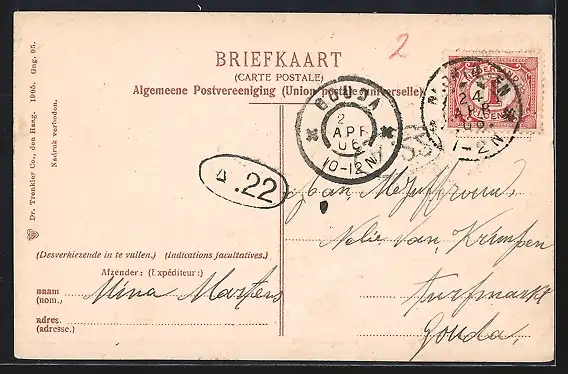 BRIEFKAART
(CARTE POSTALE)
Algemeene Postvereeniging (Union postale universelle)
2
GOUDA
2
APR
06
10-12 N
2
APR
06
1-2 N
1
CENT
Δ .22
Dr. Trenkler Co., den Haag. 1905. Gng. 95.
Nadruk verboden.
Aan Mejuffrouw
Nelie van Krimpen
Turfmarkt
Gouda,
(Desverkiezende in te vullen.) (Indications facultatives.)
Afzender: (Expéditeur:)
naam (nom.) Mina Martens
adres. (adresse.)